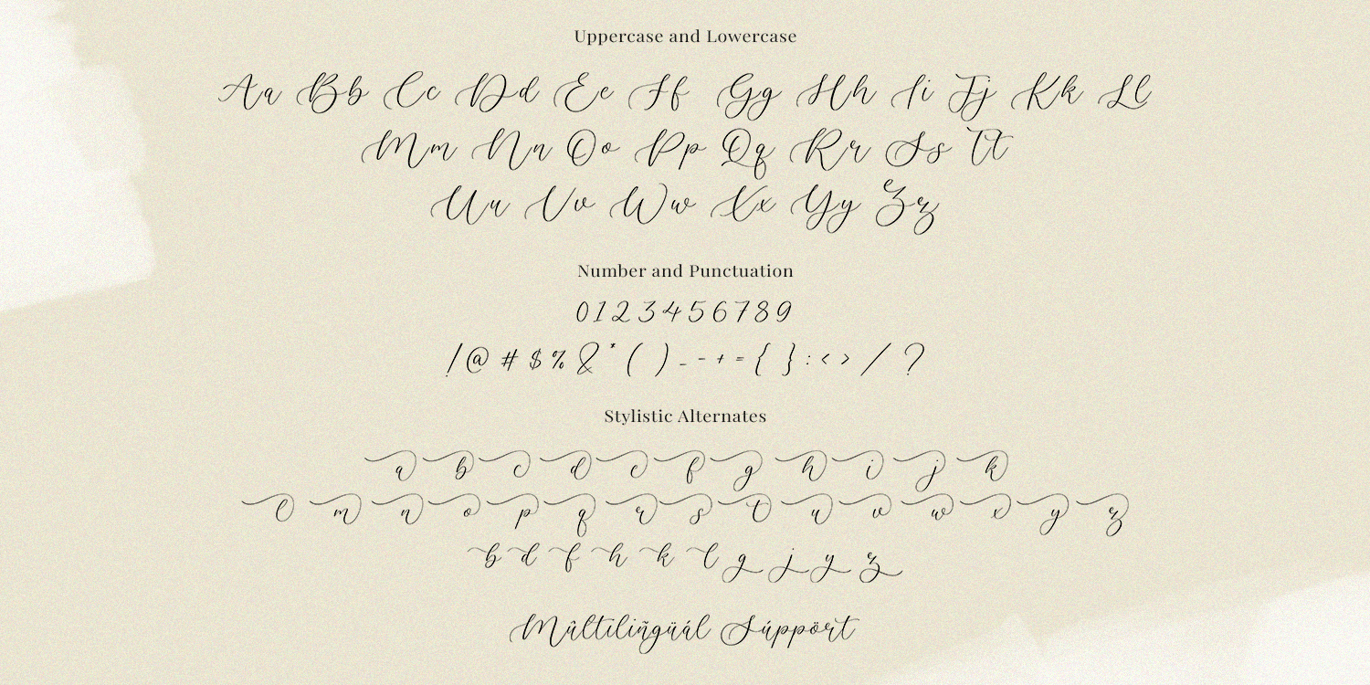 Uppercase and Lowercase
Aa Bb Cc Dd Ee Ff Gg Hh Ii Jj Kk Ll
Mm Nn Oo Pp Qq Rr Ss Tt
Uu Vv Ww Xx Yy Zz
Number and Punctuation
0123456789
!@#$%&*()_-+={}:<>/?
Stylistic Alternates
a b c d e f g h i j k
l m n o p q r s t u v w x y z
b d f h k l g j y z
Mûltiliñgüál Súppört